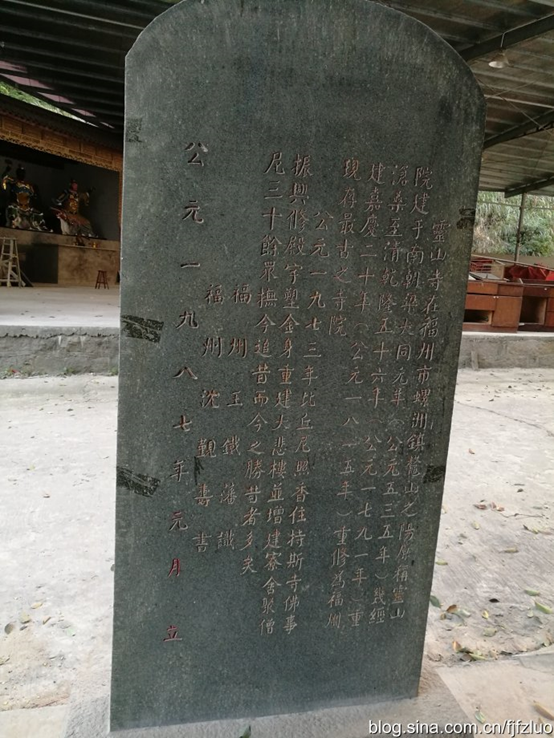 靈山寺在福州市螺洲鎮鰲山之陽原稱靈山
院建于南朝梁大同元年（公元五三五年）幾經
滄桑至清乾隆五十六年（公元一七九一年）重
建嘉慶二十年（公元一八一五年）重修爲福州
現存最古之寺院
公元一九七三年比丘尼照香住持斯寺佛事
振興修殿宇塑金身重建大悲樓並增建寮舍聚僧
尼三十餘眾撫今追昔而今之勝昔者多矣
福州王鐵藩識
福州沈覲壽書
公元一九八七年元月立
blog.sina.com.cn/fjfzluo